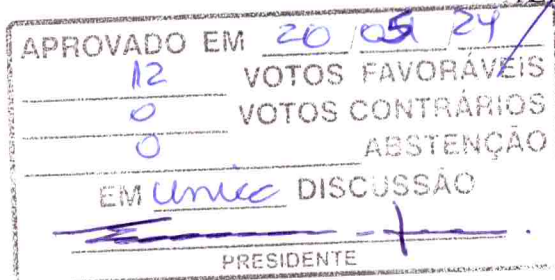 APROVADO EM 20/05/24
12 VOTOS FAVORÁVEIS
0 VOTOS CONTRÁRIOS
0 ABSTENÇÃO
EM Unica DISCUSSÃO
PRESIDENTE